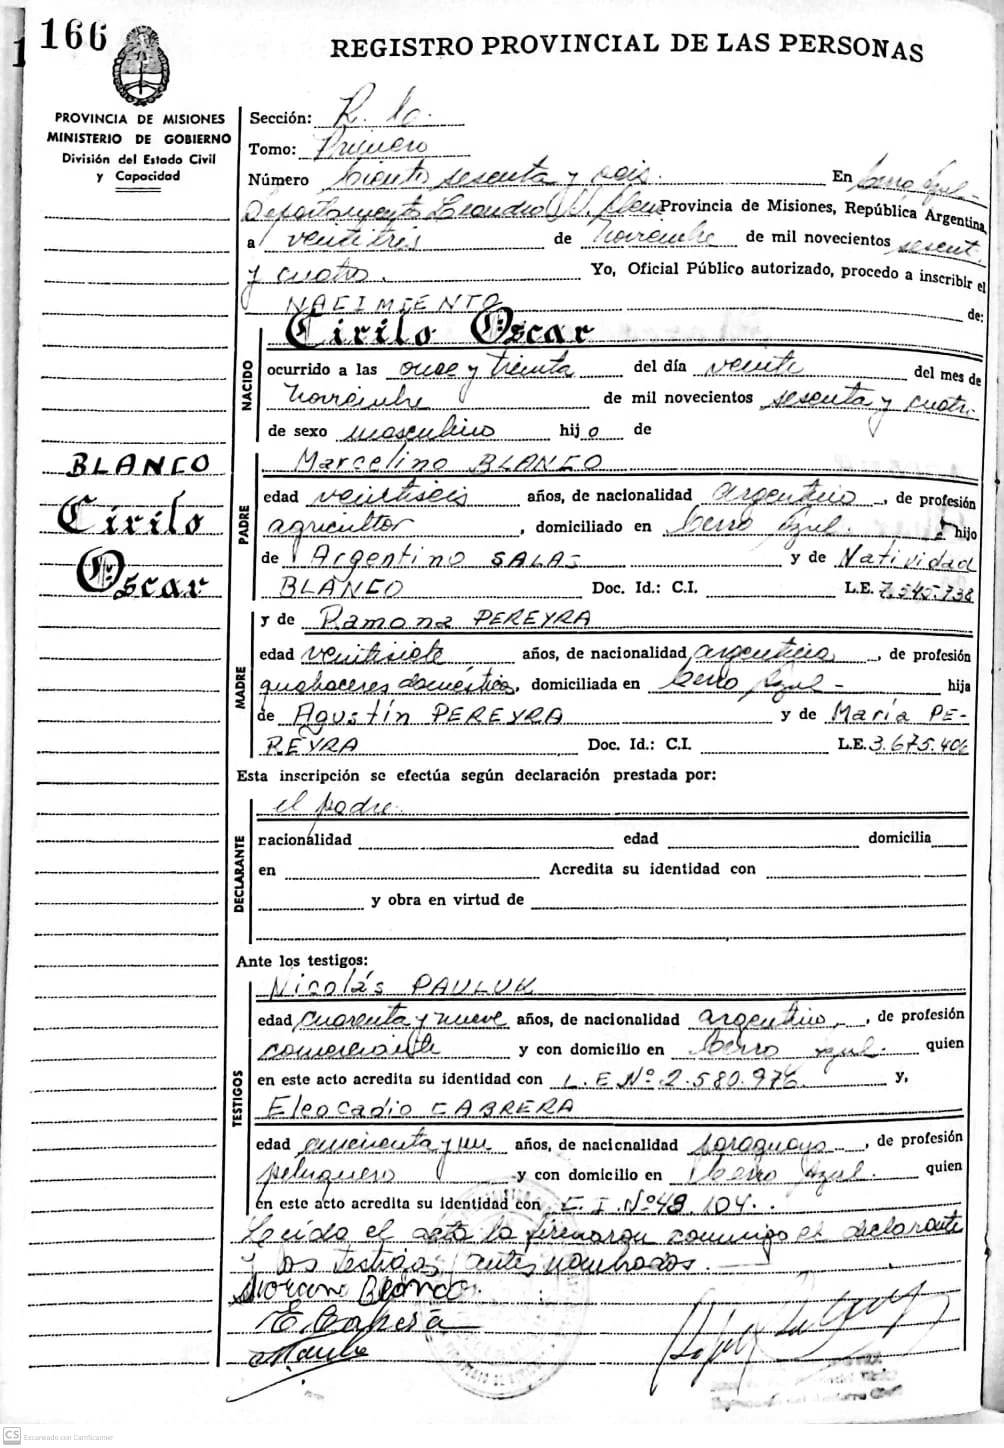 166
REGISTRO PROVINCIAL DE LAS PERSONAS
PROVINCIA DE MISIONES
MINISTERIO DE GOBIERNO
División del Estado Civil
y Capacidad
Sección:
Tomo: Primero
Número Ciento sesenta y seis. En Cerro Azul-
Departamento Leandro N. Alem Provincia de Misiones, República Argentina,
a veintitrés de Noviembre de mil novecientos sesent.
y cuatro. Yo, Oficial Público autorizado, procedo a inscribir el
NACIMIENTO de:
Cirilo Oscar
NACIDO
ocurrido a las once y treinta del día veinte del mes de
Noviembre de mil novecientos sesenta y cuatro
de sexo masculino hijo de
BLANCO
Cirilo
Oscar
Marcelino BLANCO
PADRE
edad veintiseis años, de nacionalidad argentino, de profesión
agricultor, domiciliado en Cerro Azul. hijo
de Argentino SALAS y de Natividad
BLANCO Doc. Id.: C.I. L.E. 7.545.738
y de Ramona PEREYRA
MADRE
edad veintisiete años, de nacionalidad argentina, de profesión
quehaceres domésticos, domiciliada en Cerro Azul- hija
de Agustín PEREYRA y de María PE-
REYRA Doc. Id.: C.I. L.E. 3.675.406
Esta inscripción se efectúa según declaración prestada por:
el padre.
DECLARANTE
nacionalidad edad domicilia
en Acredita su identidad con
y obra en virtud de
Ante los testigos:
Nicolás PAULUK
TESTIGOS
edad cuarenta y nueve años, de nacionalidad argentino, de profesión
comerciante y con domicilio en Cerro Azul. quien
en este acto acredita su identidad con L.E.Nº.2.580.976. y,
Eleocadio CABRERA
edad cincuenta y un años, de nacionalidad paraguayo, de profesión
peluquero y con domicilio en Cerro Azul. quien
en este acto acredita su identidad con C.I.Nº 49.104.
Leída el acta la firmaron conmigo el declarante
y los testigos antes nombrados.
Blanco.
E. Cabrera
CS Escaneado con CamScanner